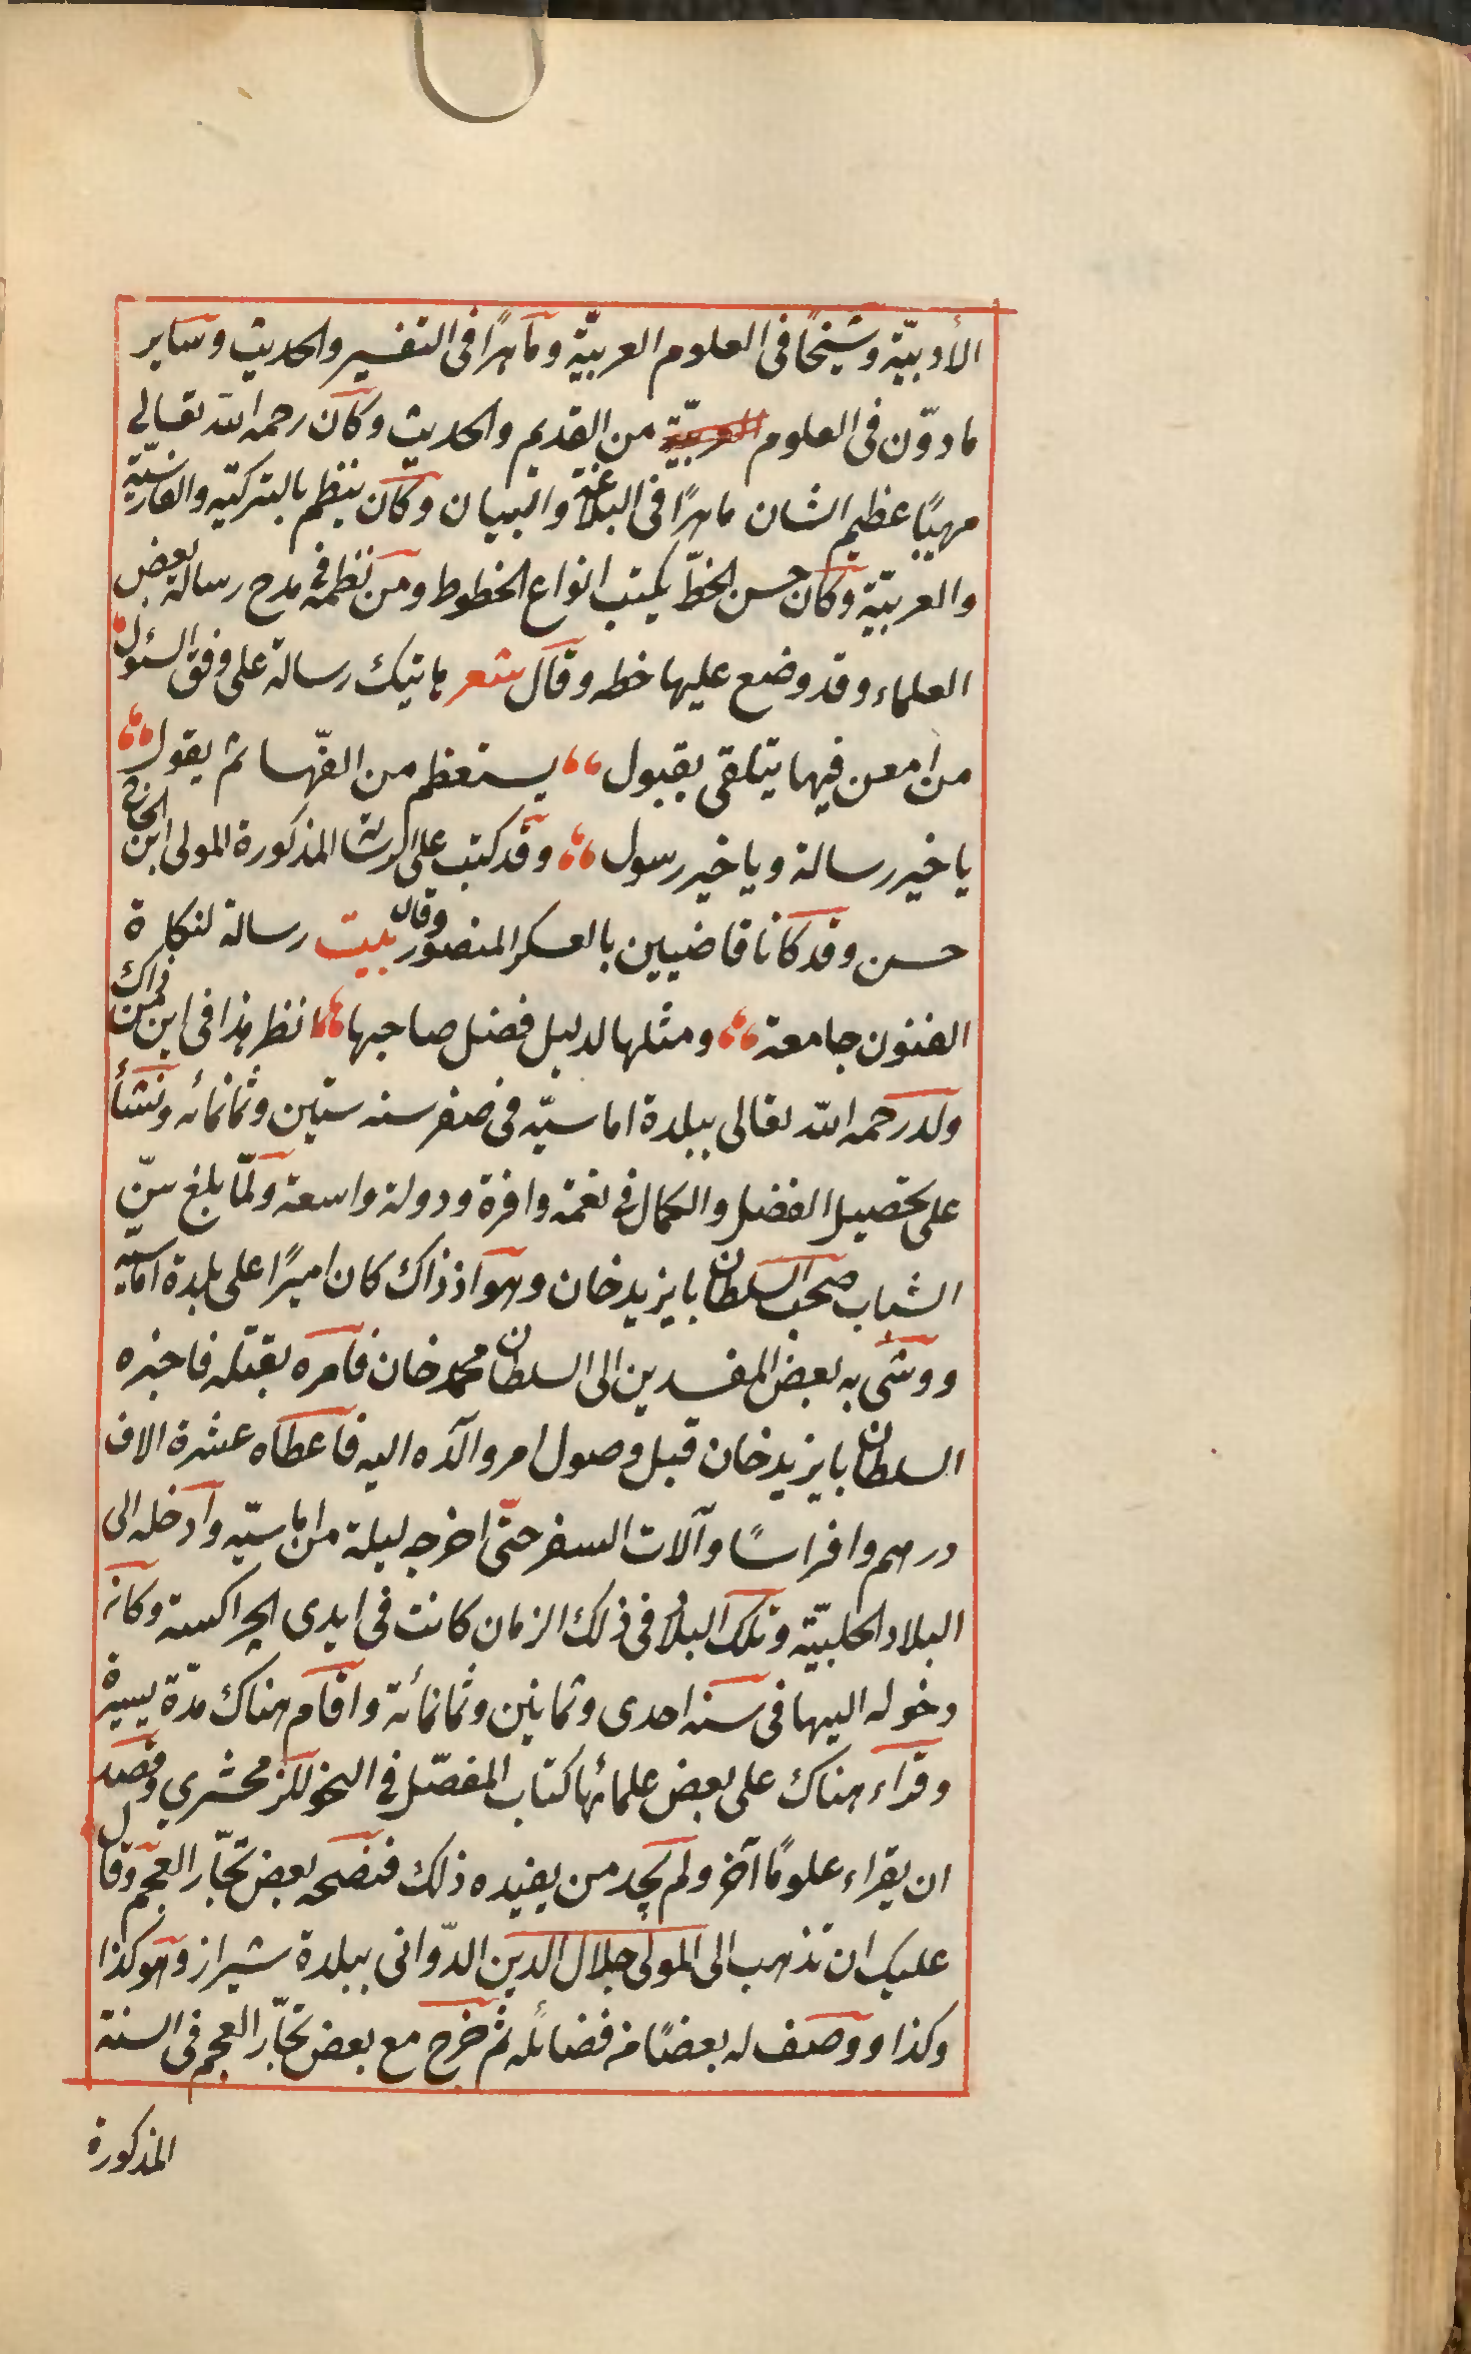 الأدبيّة وشيخًا فى العلوم العربيّة وماهرًا فى التفسير والحديث وساير
ما دوّن فى العلوم العربيّة من القديم والحديث وكان رحمه الله تعالى
مهيبًا عظيم الشان ماهرًا فى البلاغة والبيان وكان ينظم بالتركية والفارسيّة
والعربيّة وكان حسن الخطّ يكتب انواع الخطوط ومن نظمه فى مدح رسالة بعض
العلماء وقد وضع عليها خطه وقال شعر هاتيك رسالة على وفق السئول
من امعن فيها يتلقى بقبول يستعظم من الفّها ثم يقول
يا خير رسالة ويا خير رسول وقد كتب على الرسالة المذكورة المولى ابن الحاج
حسن وقد كانا قاضيين بالعسكر المنصور وقال بيت رسالة لنكارة
الفنون جامعة ومثلها لدليل فضل صاحبها انظر هذا فى ابن من ذاك
ولد رحمه الله تعالى ببلدة اماسيّه فى صفر سنه ستين وثمانمائه ونشأ
على تحصيل الفضل والكمال فى نعمة وافرة ودولة واسعة ولمّا بلغ سنّ
الشباب صحب السلطان بايزيد خان وهو اذ ذاك كان اميرًا على بلدة اماسيه
ووشى به بعض المفسدين الى السلطان محمد خان فامره بقتله فاخبره
السلطان بايزيد خان قبل وصول امر والده اليه فاعطاه عشرة الاف
درهم وافراسًا وآلات السفر حتّى اخرجه ليلة من اماسيّه وادخله الى
البلاد الحلبيّة وتلك البلاد فى ذلك الزمان كانت فى ايدى الچراكسة وكانه
دخوله اليها فى سنه احدى وثمانين وثمانمائة واقام هناك مدّة يسيرة
وقراء هناك على بعض علمائها كتاب المفصّل فى النحو للزمخشري وقصد
ان يقراء علومًا آخر ولم يجد من يفيده ذلك فنصحه بعض تجّار العجم وقال
عليك ان تذهب الى المولى جلال الدين الدّوانى ببلدة شيراز وهو كذا
وكذا ووصف له بعضًا من فضائله ثم خرج مع بعض تجّار العجم فى السنة
المذكورة